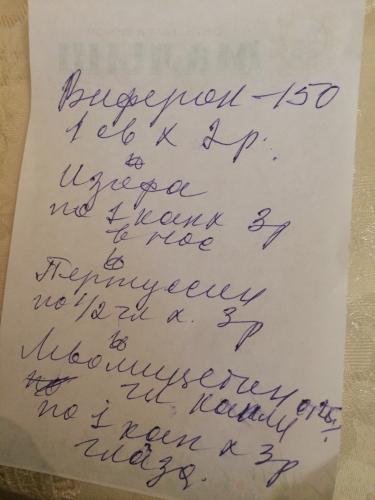 Виферон – 150
1 св х 2 р.
Изофра
по 1 кап х 3р
в нос
Пертуссин
по 1/2 чл х. 3р
Левомицетин
гл капли 0,25%
по 1 кап х 3р
глаза.